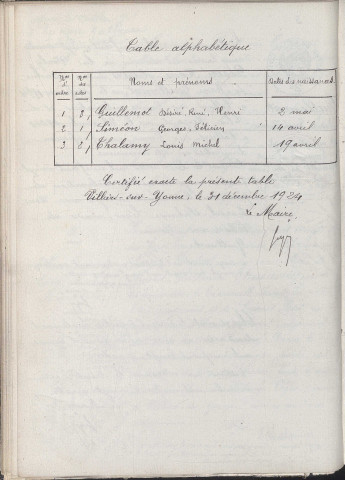 Table alphabétique
Nos d'ordre Nos des actes Noms et prénoms Dates des naissances
1 3 Guillemot Désiré, René, Henri 2 mai
2 1 Siméon Georges, Félicien 14 avril
3 2 Thalamy Louis Michel 19 avril
Certifié exacte la présente table
Villiers-sur-Yonne, le 31 décembre 1924
Le Maire,